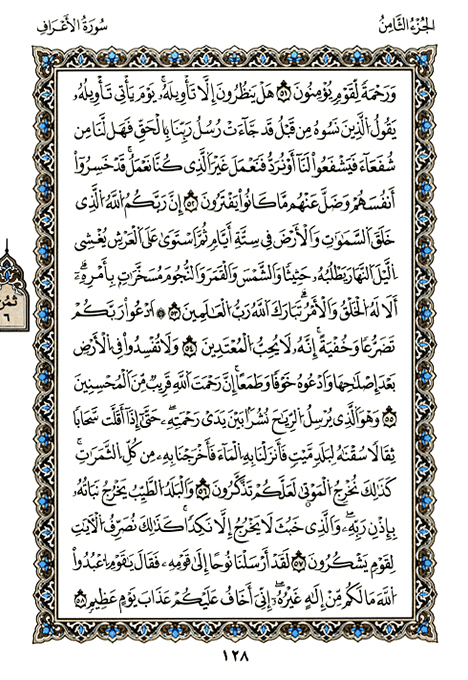 الجُزْءُ الثَّامِنُ
سُورَةُ الأَعْرَافِ
وَرَحْمَةً لِّقَوْمٍ يُؤْمِنُونَ ٥١ هَلْ يَنظُرُونَ إِلَّا تَأْوِيلَهُۥ يَوْمَ يَأْتِي تَأْوِيلُهُۥ
يَقُولُ الَّذِينَ نَسُوهُ مِن قَبْلُ قَدْ جَآءَتْ رُسُلُ رَبِّنَا بِالْحَقِّ فَهَل لَّنَا مِن
شُفَعَآءَ فَيَشْفَعُواْ لَنَآ أَوْ نُرَدُّ فَنَعْمَلَ غَيْرَ الَّذِي كُنَّا نَعْمَلُ قَدْ خَسِرُوٓاْ
أَنفُسَهُمْ وَضَلَّ عَنْهُم مَّا كَانُواْ يَفْتَرُونَ ٥٢ إِنَّ رَبَّكُمُ اللَّهُ الَّذِي
خَلَقَ السَّمَٰوَٰتِ وَالْأَرْضَ فِي سِتَّةِ أَيَّامٍ ثُمَّ اسْتَوَىٰ عَلَى الْعَرْشِ يُغْشِي
الَّيْلَ النَّهَارَ يَطْلُبُهُۥ حَثِيثًا وَالشَّمْسَ وَالْقَمَرَ وَالنُّجُومَ مُسَخَّرَٰتٍ بِأَمْرِهِۦٓ
أَلَا لَهُ الْخَلْقُ وَالْأَمْرُ تَبَارَكَ اللَّهُ رَبُّ الْعَٰلَمِينَ ٥٣ ۞ ادْعُواْ رَبَّكُمْ
تَضَرُّعًا وَخُفْيَةً إِنَّهُۥ لَا يُحِبُّ الْمُعْتَدِينَ ٥٤ وَلَا تُفْسِدُواْ فِي الْأَرْضِ
بَعْدَ إِصْلَٰحِهَا وَادْعُوهُ خَوْفًا وَطَمَعًا إِنَّ رَحْمَتَ اللَّهِ قَرِيبٌ مِّنَ الْمُحْسِنِينَ
٥٥ وَهُوَ الَّذِي يُرْسِلُ الرِّيَٰحَ نُشُرًا بَيْنَ يَدَيْ رَحْمَتِهِۦ حَتَّىٰٓ إِذَآ أَقَلَّتْ سَحَابًا
ثِقَالًا سُقْنَٰهُ لِبَلَدٍ مَّيْتٍ فَأَنزَلْنَا بِهِ الْمَآءَ فَأَخْرَجْنَا بِهِۦ مِن كُلِّ الثَّمَرَٰتِ
كَذَٰلِكَ نُخْرِجُ الْمَوْتَىٰ لَعَلَّكُمْ تَذَّكَّرُونَ ٥٦ وَالْبَلَدُ الطَّيِّبُ يَخْرُجُ نَبَاتُهُۥ
بِإِذْنِ رَبِّهِۦ وَالَّذِي خَبُثَ لَا يَخْرُجُ إِلَّا نَكِدًا كَذَٰلِكَ نُصَرِّفُ الْأٓيَٰتِ
لِقَوْمٍ يَشْكُرُونَ ٥٧ لَقَدْ أَرْسَلْنَا نُوحًا إِلَىٰ قَوْمِهِۦ فَقَالَ يَٰقَوْمِ اعْبُدُواْ
اللَّهَ مَا لَكُم مِّنْ إِلَٰهٍ غَيْرُهُۥٓ إِنِّيَ أَخَافُ عَلَيْكُمْ عَذَابَ يَوْمٍ عَظِيمٍ ٥٨
ثُمُن
٦
١٢٨